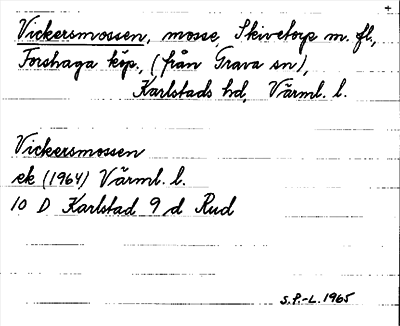 Vickersmossen, mosse, Skivetorp m. fl.,
Forshaga köp., (från Grava sn),
Karlstads hd, Värml. l.
Vickersmossen
ek (1964) Värml. l.
10 D Karlstad 9 d Rud
S.P.-L. 1965